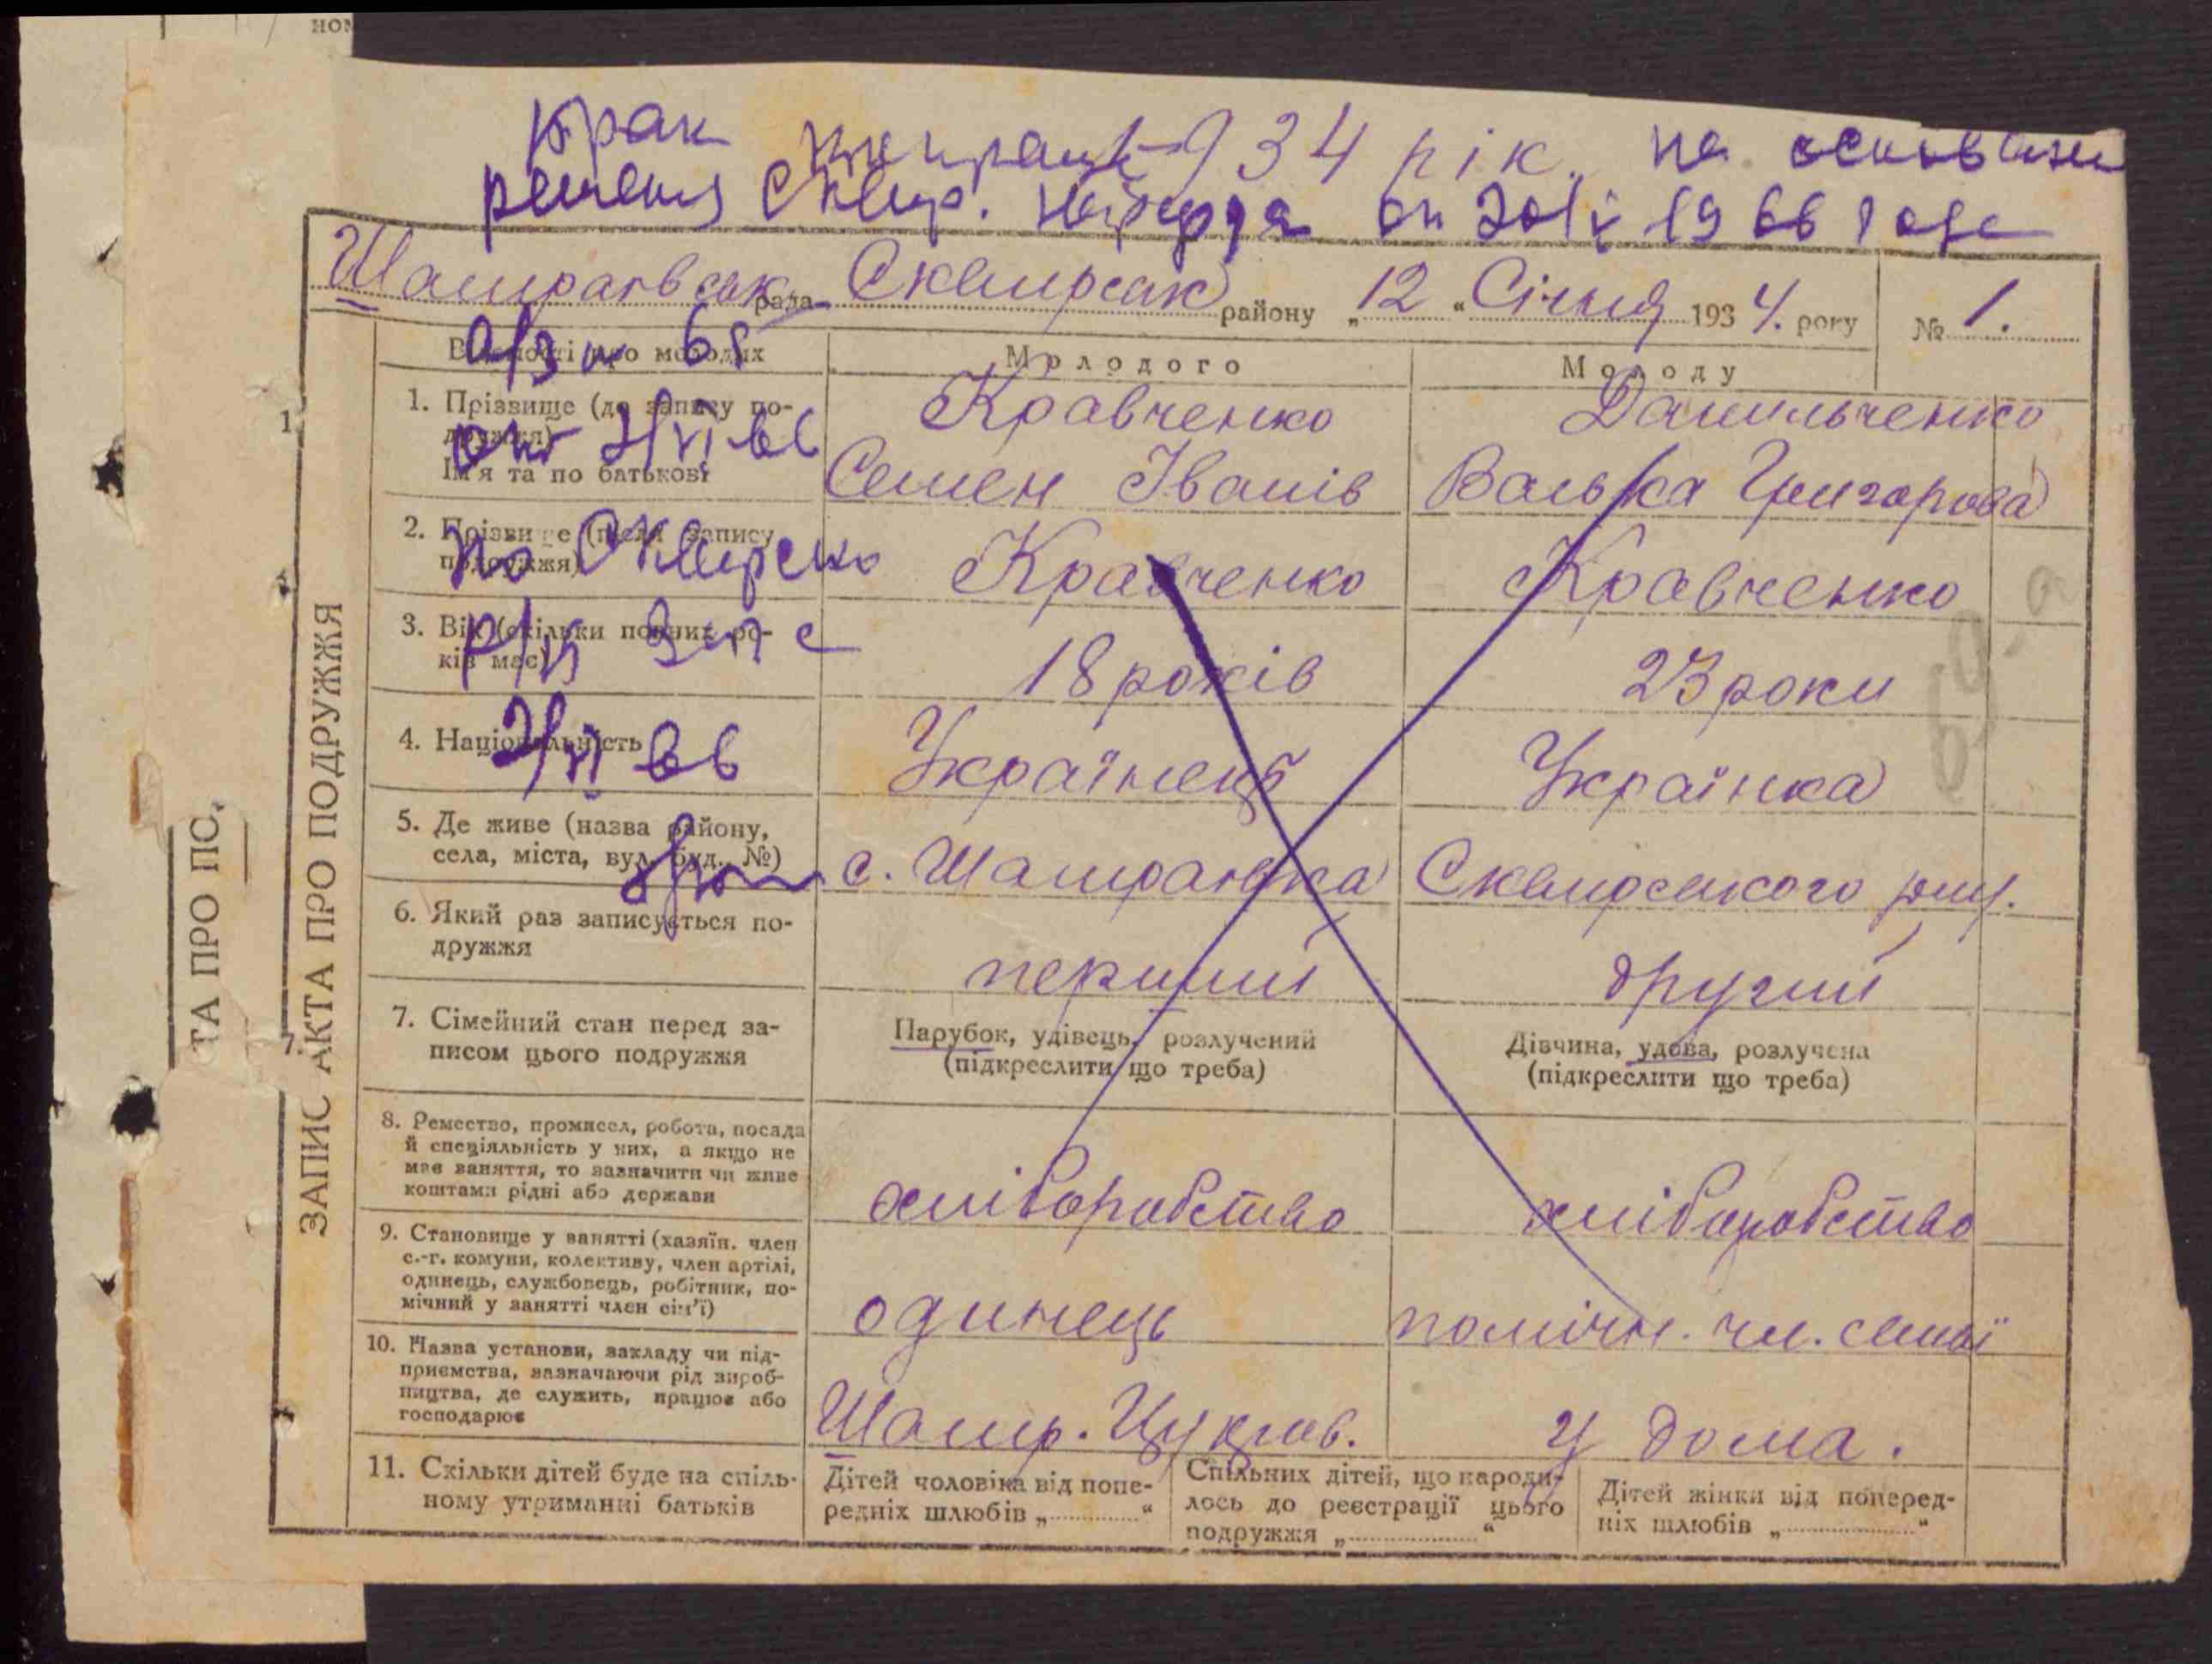 1934 рік. на основании
решения Сквир. Нарсуда от 20/V 1966 года
Шамраївськ рада Сквирськ району „12“ Січня 1934. року № 1.
Відомості про молодих Молодого Молоду
1. Прізвище (до запису подружжя)
Ім'я та по батькові
Кравченко
Семен Іванів
Данильченко
Валька Григорова
2. Прізвище (після запису подружжя)
Кравченко
Кравченко
3. Вік (скільки повних років має)
18 років
23 роки
4. Національність
Українець
Українка
2/VI 66
5. Де живе (назва району,
села, міста, вул. буд. №)
с. Шамраївка
Сквирського рай.
6. Який раз записується по-
дружжя
перший
другий
7. Сімейний стан перед за-
писом цього подружжя
Парубок, удівець, розлучений
(підкреслити що треба)
Дівчина, удова, розлучена
(підкреслити що треба)
8. Ремество, промисел, робота, посада
й спеціяльність у них, а якщо не
має заняття, то зазначити чи живе
коштами рідні або держави
хліборобство
хліборобство
9. Становище у занятті (хазяїн. член
с.-г. комуни, колективу, член артілі,
одинець, службовець, робітник, по-
мічний у занятті член сім'ї)
одинець
помічн. чл. семьї
10. Назва установи, закладу чи під-
приємства, зазначаючи рід вироб-
ництва, де служить, працює або
господарює
Шамр. Цукрав.
у дома.
11. Скільки дітей буде на спіль-
ному утриманні батьків
Дітей чоловіка від попе-
редніх шлюбів „ “
Спільних дітей, що народи-
лось до реєстрації цього
подружжя „ “
Дітей жінки від поперед-
ніх шлюбів „ “
ЗАПИС АКТА ПРО ПОДРУЖЖЯ
ТА ПРО ПО